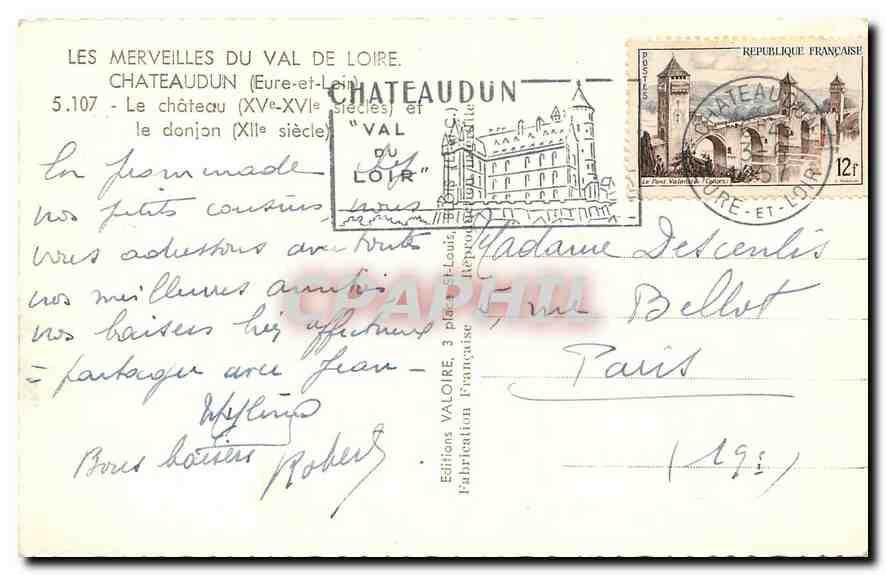 LES MERVEILLES DU VAL DE LOIRE.
CHATEAUDUN (Eure-et-Loir)
5.107 - Le château (XVe-XVIe siècles) et
le donjon (XIIe siècle)
En promenade
nos petits cousins, nous
vous adressons avec toutes
nos meilleures amitiés
nos baisers affectueux
= partager avec Jean =
Bons baisers Robert.
CHATEAUDUN
"VAL
DU
LOIR"
Editions VALOIRE, 3 place St-Louis, Blois (L.-&-C.)
Fabrication Française Reproduction interdite
POSTES
REPUBLIQUE FRANÇAISE
Le Pont Valentré (Cahors)
12f
CHATEAUDUN
EURE-ET-LOIR
Madame Descentis
5, rue Bellot
Paris
(19e)
CPAPHIL